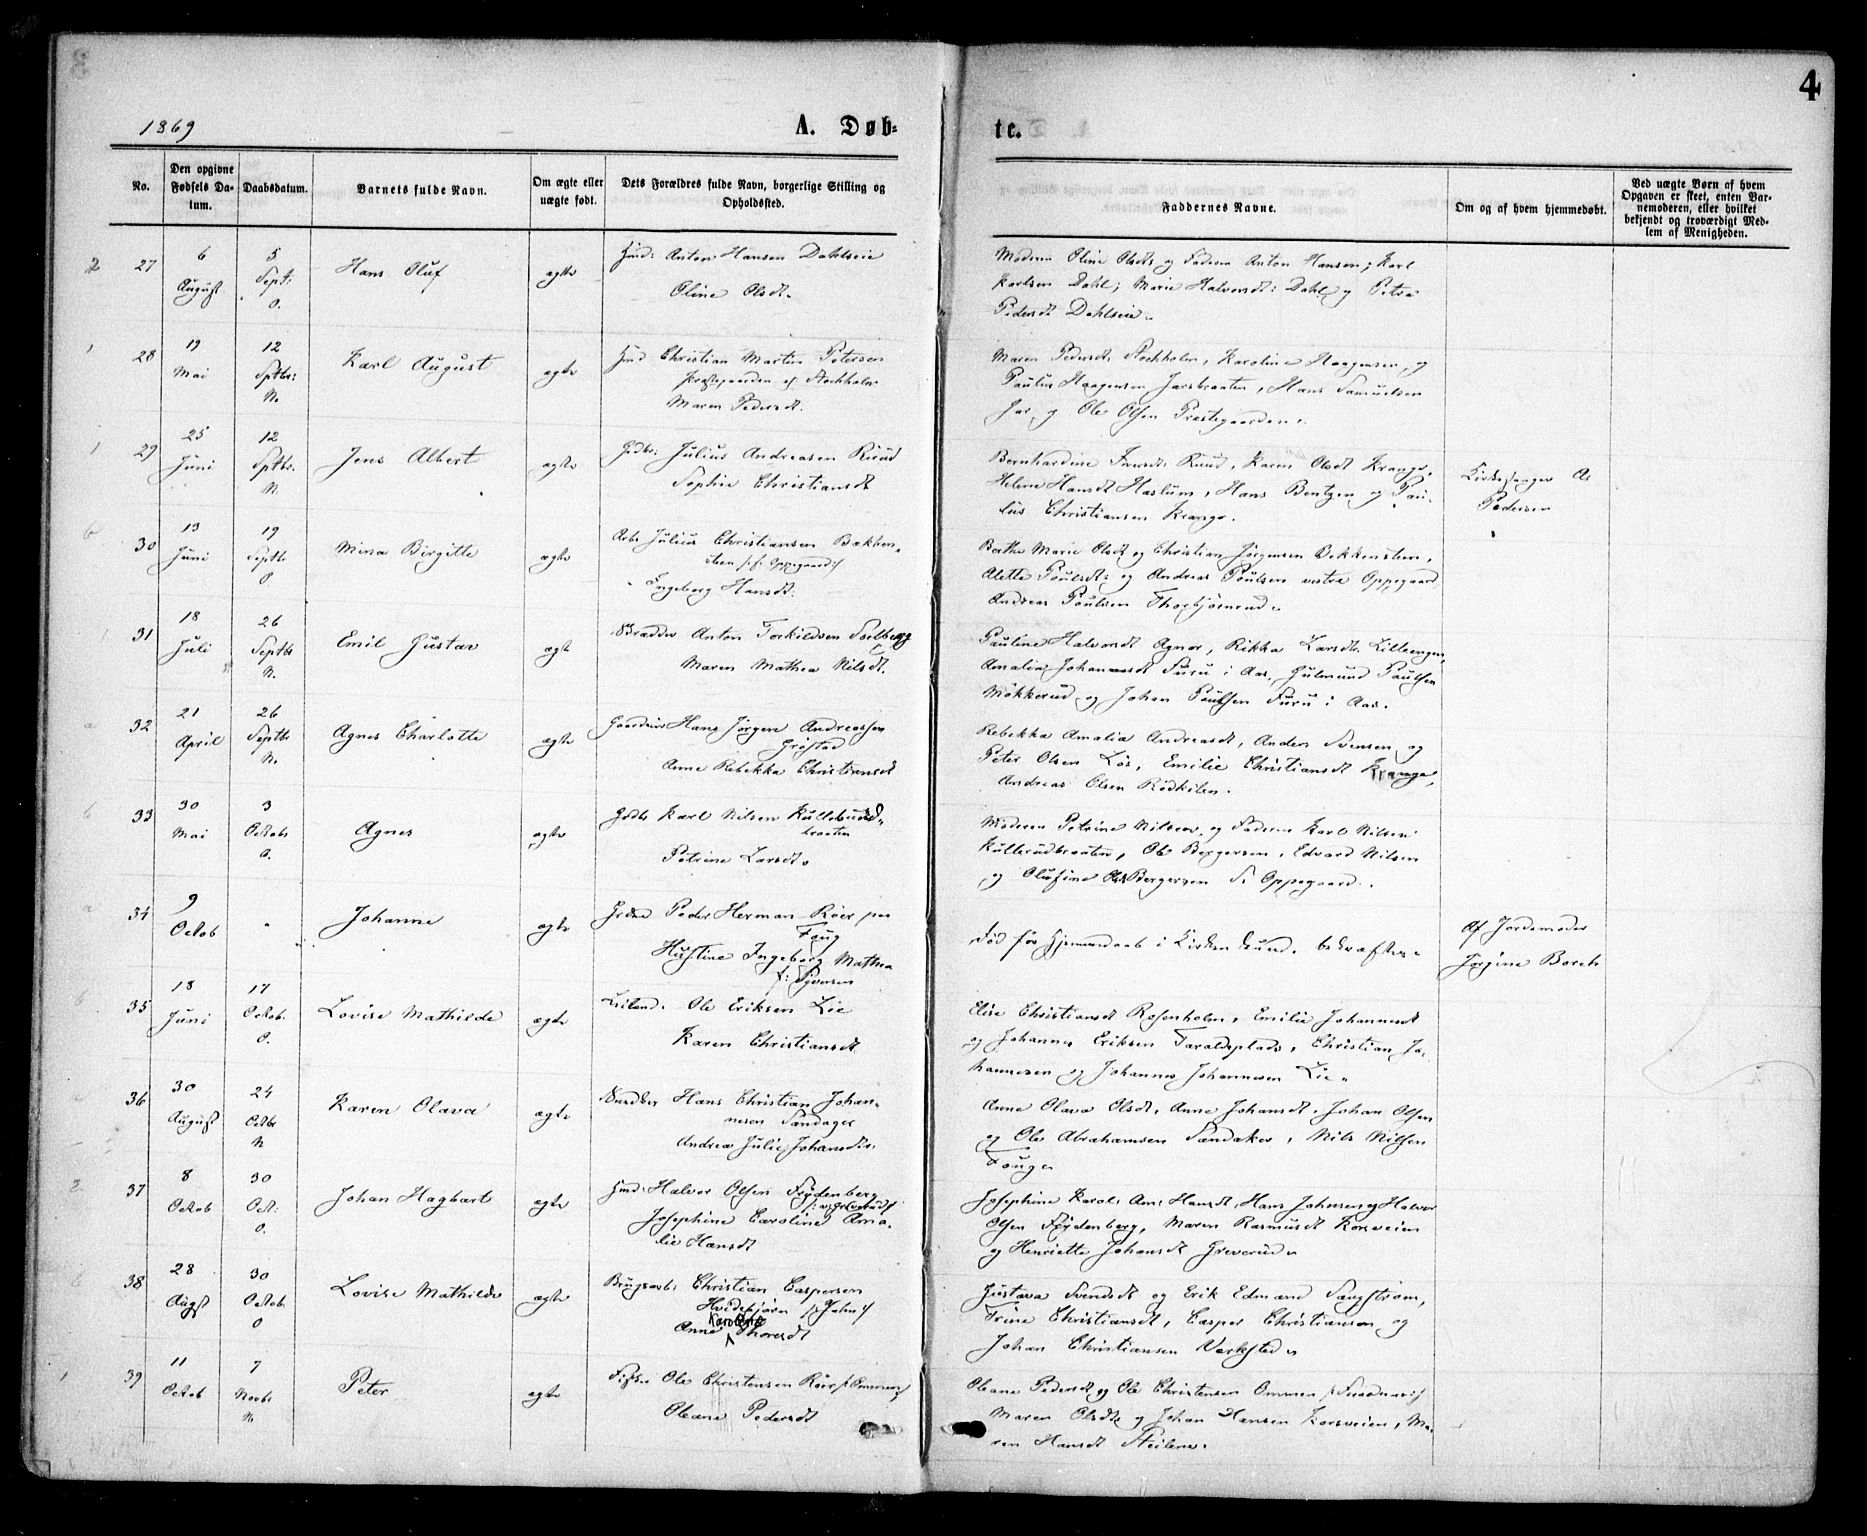 4
1869
A. Døb-
te.
No.
Den opgivne Fødsels Da-tum.
Daabsdatum.
Barnets fulde Navn.
Om ægte eller uægte født.
Dets Forældres fulde Navn, borgerlige Stilling og Opholdssted.
Faddernes Navne.
Om og af hvem hjemmedøbt.
Ved uægte Børn af hvem Opgaven er skeet, enten Bar-nemoderen, eller hvilket bekjendt og troværdigt Med-lem af Menigheden.
2 27 6 August 5 Septr. O. Hans Oluf ægte
Hmd: Anton Hansen Dahlseie
Oline Olsdt.
Moderen Oline Olsdtr og Faderen Anton Hansen, Karl
Karlsen Dahl, Marie Halvorsdt: Dahl og Petra
Pedersdt Dahlseie.
1 28 19 Mai 12 Sptbr: N. Karl August ægte
Hmd Christian Martin Petersen
Præstegaarden af Stockholm
Maren Pedersdt.
Maren Pedersdt. Stockholm, Karoline Haagensen, og
Paulin Haagensen Jarsbraaten, Hans Samuelsen
Jar, og Ole Olsen Prestegaarden.
1 29 25 Juni 12 Sptbr. N. Jens Albert ægte
Gdbr: Julius Andreasen Ruud
Sophie Christiansdt
Bernhardine Jensdt Ruud, Karen Olsdt Krange,
Helene Hansdt Haslum, Hans Bentzen og Pau-
lus Christiansen Krange.
Kirkesanger As
Pedersen
6 30 13 Juni 19 Septbr O Mina Birgitte ægte
Arbr Julius Christiansen Bækken-
steen /: f: Oppegaard :/
Ingeborg Hansdt.
Berthe Marie Olsdt og Christian Jørgensen Bekkensteen,
Alette Poulsdt: og Andreas Poulsen vestre Oppegaard
Andreas Poulsen Thorbjørnrud.
1 31 18 Juli 26 Septbr N. Emil Gustav ægte
Anton Torkildsen Solberg
Maren Mathea Nilsdt.
Pauline Halvorsdt Agnor, Rikka Larsdt. Lilleengen,
Amalia Johannesdt Furu i Aas, Gulmund Paulsen
Møkkerud og Johan Poulsen Furu i Aas.
a 32 21 April 26 Septbr N. Agnes Charlotte ægte
Hans Jørgen Andreassen
Grøstad
Anne Rebekka Christiansdt
Rebekka Amalia Andreasdt, Anders Svensen og
Peter Olsen Lös, Emilie Christiansdt Krange,
Andreas Olsen Rødkilen.
6 33 30 Mai 3 Octobr O. Agnes ægte
Gdbr Karl Nilsen Kullerud-
braaten
Petrine Larsdt.
Moderen Petrine Nilsen, og Faderen Karl Nilsen
Kullerudbraaten, Ole Bergersen, Edvard Nilsen
og Olufine Bergersen Oppegaard.
a 34 9 Octob " Johanne ægte
Peder Herman Röer paa
Foug
Hustine Ingeborg Mathea
f: Syversen
Död för Hjemmedaab i Kirken kund. bekræftes.
Af Jordemoder
Jørgine Borch
6 35 18 Juni 17 Octobr. O. Lovise Mathilde ægte
Leilend. Ole Eriksen Lie
Karen Christiansdt
Elise Christiansdt Rosenholm, Emilie Johannesdt
og Johannes Eriksen Taraldsplads, Christian Jo-
hannesen og Johannes Johannesen Lie.
36 30 August 24 Octbr N Karen Olava ægte
Hans Christian Johan-
nesen Sandager
Andrea Julie Johansdtr.
Anne Olava Olsdt, Anne Johansdt, Johan Olsen
og Ole Abrahamsen Sandaker, Nils Nilsen
Fouge
2 37 8 Octob 30 Oct: O. Johan Hagbart ægte
Hmd: Halvor Olsen Frydenberg
/: v: Greverud :/
Josephine Caroline Ama-
lie Hansdt
Josephine Karol. Am: Hansdt, Hans Johnsen og Halvor
Olsen Frydenberg, Maren Rasmusdt Korsveien
og Henriette Johansdt Greverud.
6 38 28 Augst 30 Octob. O Lovise Mathilde ægte
Brugsarb: Christian Caspersen
Hvidebjørn
Karoline
Anne Thoresdt
Gustava Svendsdt og Erik Edmand Sangstrøm,
Trine Christiansdt, Casper Christiansen og
Johan Christiansen Værksted.
1 39 11 Octob 7 Novbr. N. Peter ægte
Ole Christensen Röer /: Ommen :/
Oleane Pedersdt
Oleane Pedersdt og Ole Christensen Ommen
Maren Olsdtr og Johan Hansen Korsveien, Ma-
ren Hansdt Steilene.